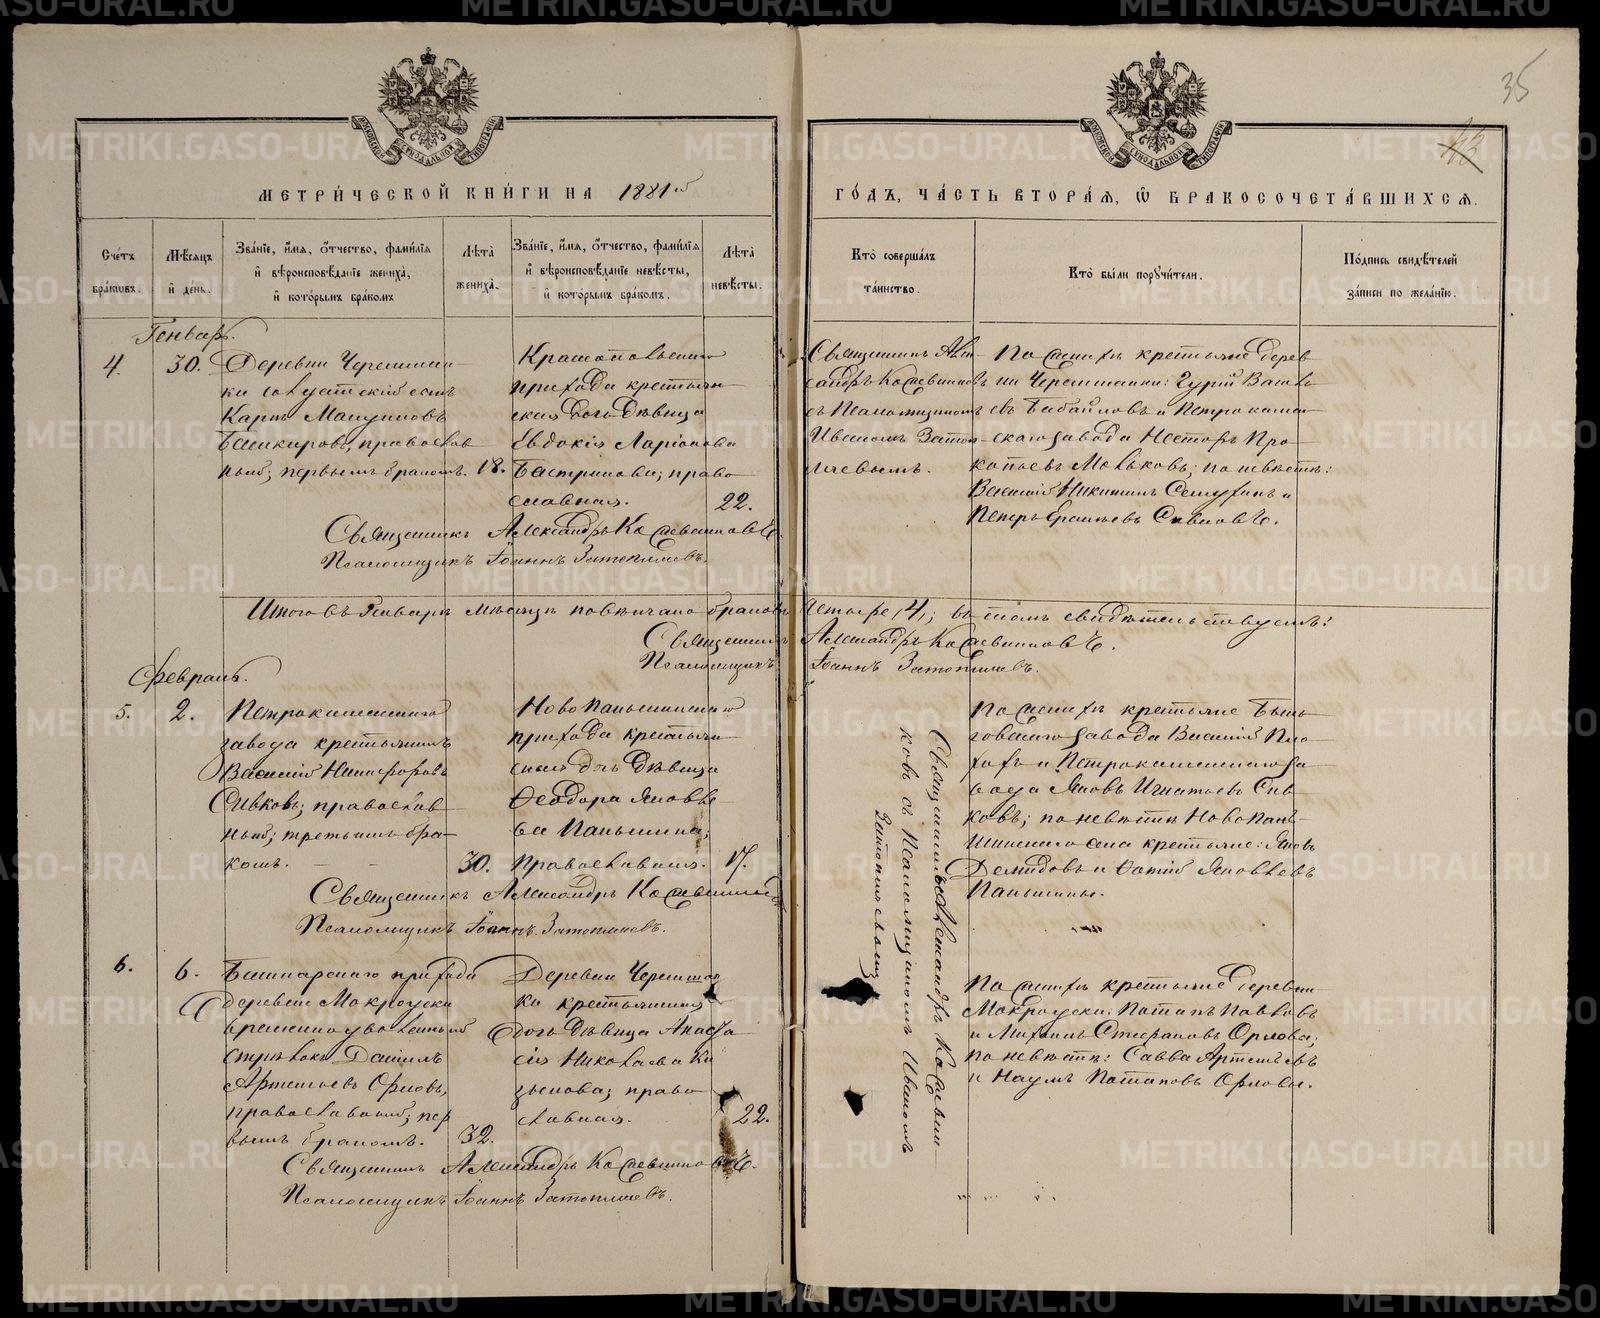 35
43
МЕТРИ́ЧЕСКОЙ КНИ́ГИ НА 1881й
ГО́ДЪ, ЧА́СТЬ ВТОРА́Я, Ѡ БРАКОСОЧЕТА́ВШИХСЯ.
Сче́тъ бра́ковъ.
Мѣ́сяцъ и҆ де́нь.
Зва́нїе, и҆́мя, ѻ҆́тчество, фами́лїя и҆ вѣроисповѣ́данїе жениха̀, и҆ кото́рымъ бра́комъ
Лѣ́та жениха̀.
Зва́нїе, и҆́мя, ѻ҆́тчество, фами́лїя и҆ вѣроисповѣ́данїе невѣ́сты, и҆ кото́рымъ бра́комъ.
Лѣ́та невѣ́сты.
Кто̀ соверша́лъ та́инство.
Кто̀ бы́ли порꙋчи́тели.
По́дпись свидѣ́телей за́писи по жела́нїю.
Генварь.
4.
30.
Деревни Черемшан-
ки
Карпъ
Башкировъ, православ
ный; первымъ бракомъ.
18.
прихода крестьян
ская дочь дѣвица
Евдокія Ларіонова
Бастрикова; право
славная.
22.
Священникъ Алек-
сандръ Кос
съ Псаломщикомъ
Иваномъ Затоп-
ляевымъ.
По женихѣ крестьяне дерев
ни Черемшанки: Гурій
евъ Бабайловъ и Петрокамен
скаго завода Несторъ Про
копьевъ; по невѣстѣ:
Василій Никитинъ и
Петръ
Священникъ Александръ
Псаломщикъ Іоаннъ Затопляевъ.
Итого въ Генварѣ мѣсяцѣ повѣнчано браковъ четыре /4/; въ томъ свидѣтельствуемъ:
Священникъ Александръ
Псаломщикъ Іоаннъ Затопляевъ.
Февраль.
5.
2.
Петрокаменскаго
завода крестьянинъ
Василій Никифоровъ
Сивковъ; православ
ный; третьимъ бра-
комъ.
30.
Ново Паньшинскаго
прихода крестьян
ская дочь дѣвица
Ѳеодора Яковле
ва Паньшина;
Православная.
17.
По женихѣ крестьяне Бынь
говскаго завода Василій
и Петрокаменскаго за
вода Яковъ Игнатьевъ Сив
ковъ; по невѣстѣ Ново Пань-
шинскаго села крестьяне: Яковъ
Демидовъ и Фотій Яковлевъ
Паньшины.
Священникъ Александръ
Псаломщикъ Іоаннъ Затопляевъ.
Священникъ Александръ
ковъ съ Псаломщикомъ Иваномъ
Затопляевымъ
6.
6.
Башкарскаго прихода
деревни Мокроуски
временно уволенный
стрѣлокъ Даніилъ
Артемьевъ Орловъ,
православный; пер
вымъ бракомъ.
32.
Деревни Черемшан
ки крестьянина
дочь дѣвица Анаста
сія Николаева
право
славная.
22.
По женихѣ крестьяне деревни
Мокроуски: Потапъ Павловъ
и Михаилъ Стефановъ Орловы;
по невѣстѣ: Савва Артемьевъ
и Наумъ Потаповъ Орловы.
Священникъ Александръ
Псаломщикъ Іоаннъ Затопляевъ.
METRIKI.GASO-URAL.RU